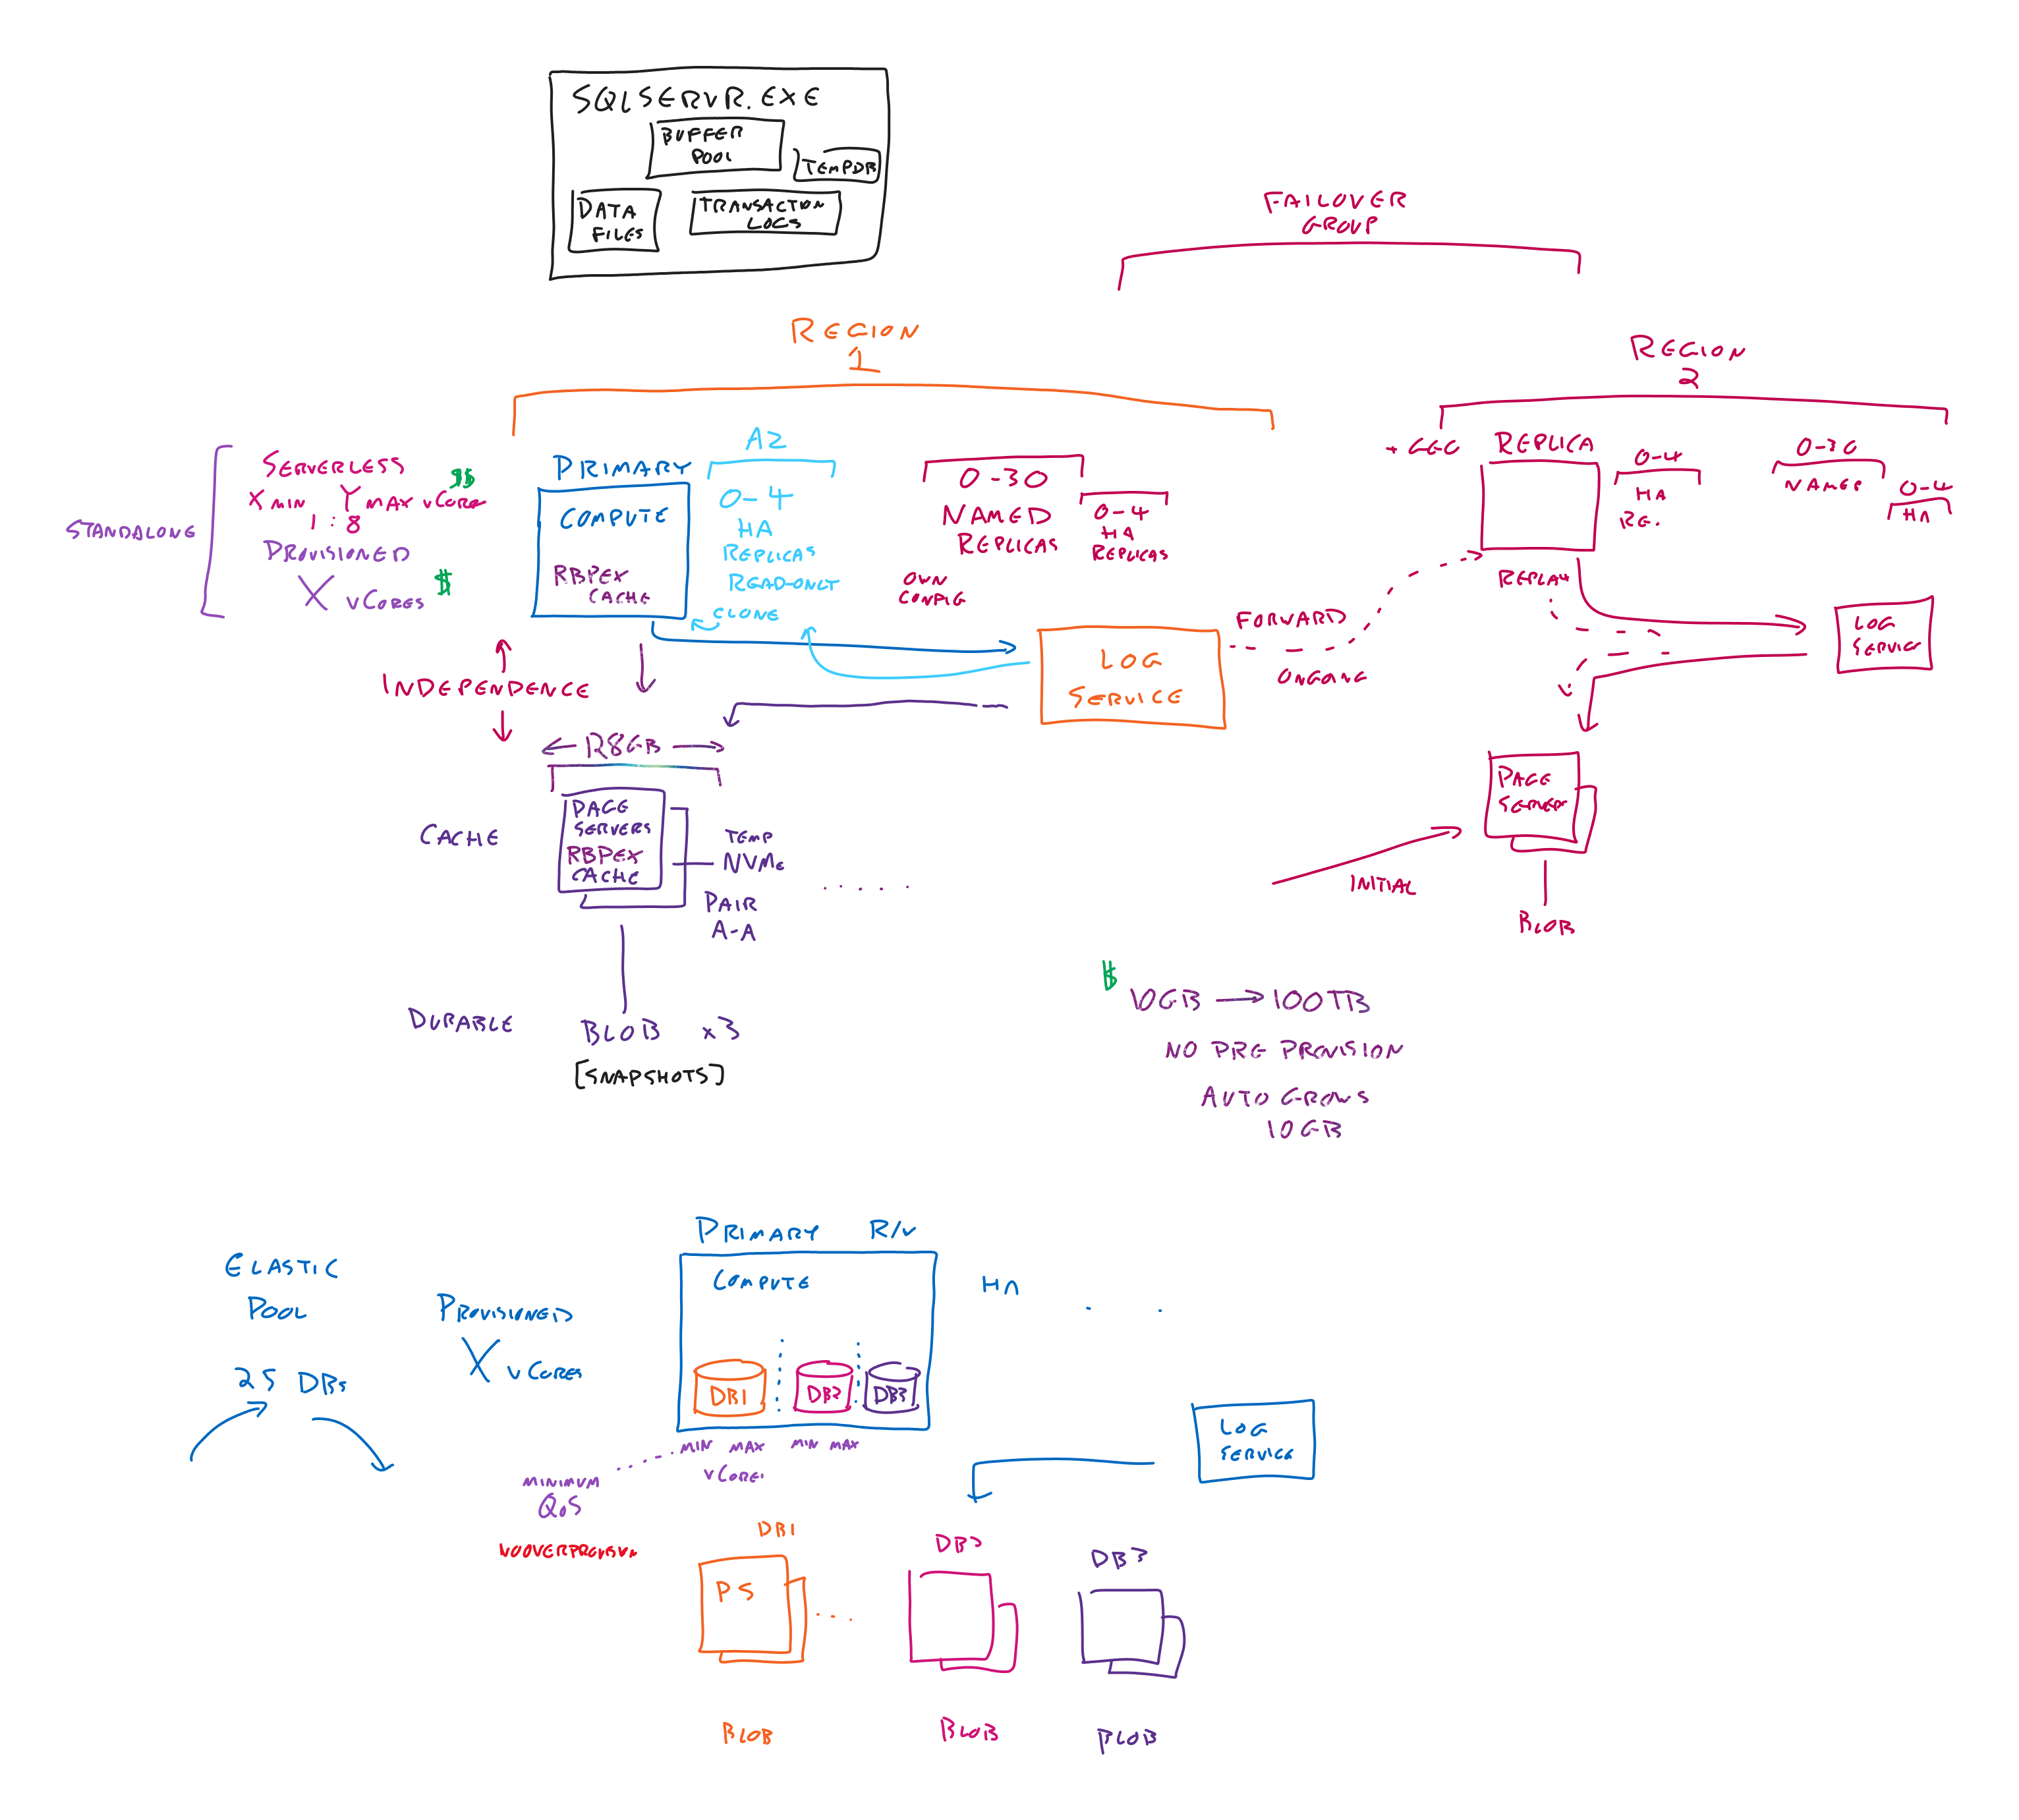 SQLSERVR.EXE
BUFFER
POOL
TEMPDB
DATA
FILES
TRANSACTION
LOGS
FAILOVER
GROUP
REGION
1
REGION
2
STANDALONE
SERVERLESS
$$
X MIN Y MAX vCORE
1 : 8
PROVISIONED
X vCORES $
PRIMARY
COMPUTE
RBPEX
CACHE
AZ
0-4
HA
REPLICAS
READ-ONLY
CLONE
0-30
NAMED
REPLICAS
0-4
HA
REPLICAS
OWN
CONFIG
LOG
SERVICE
FORWARD
ONGOING
+ GEO
REPLICA
0-4
HA
RE.
0-30
NAMED
0-4
HA
REPLAY
LOG
SERVICE
INDEPENDENCE
128GB
CACHE
PAGE
SERVERS
RBPEX
CACHE
TEMP
NVMe
PAIR
A-A
. . . . .
PAGE
SERVER
INITIAL
BLOB
DURABLE
BLOB x3
[SNAPSHOTS]
$
10GB → 100TB
NO PRE PROVISION
AUTO GROWS
10GB
ELASTIC
POOL
25 DBs
PROVISIONED
X vCORES
PRIMARY R/W
COMPUTE
HA . .
DB1
DB2
DB3
MIN MAX
vCORE
MIN MAX
MINIMUM
QoS
NOOVERPROVISION
LOG
SERVICE
DB1
PS
. . .
DB2
DB3
BLOB
BLOB
BLOB